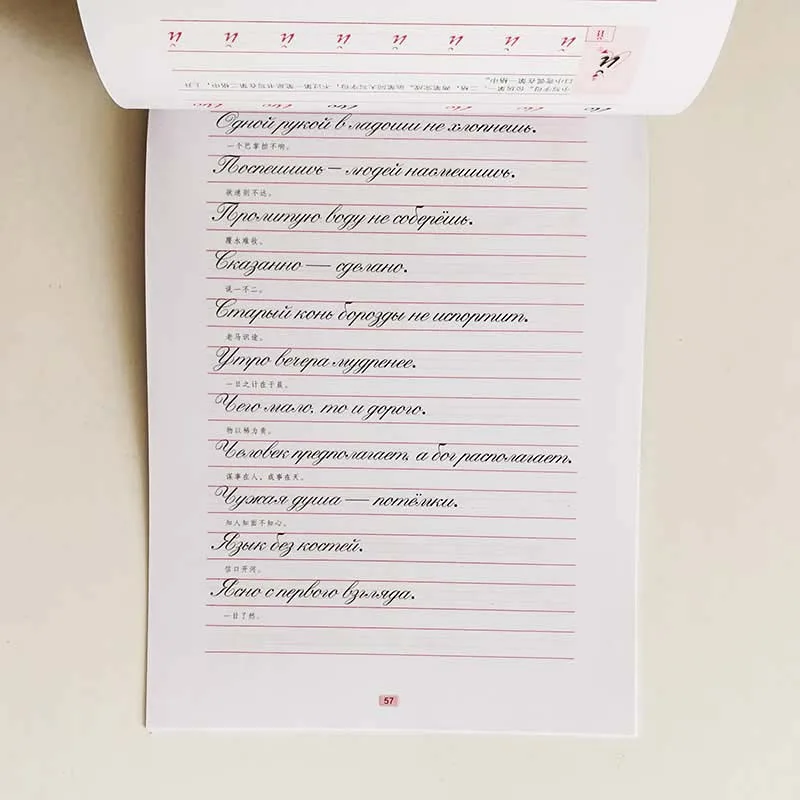 й й й й й й й й
Й
Одной рукой в ладоши не хлопнешь.
一个巴掌拍不响。
Поспешишь — людей насмешишь.
欲速则不达。
Пролитую воду не соберёшь.
覆水难收。
Сказанно — сделано.
说一不二。
Старый конь борозды не испортит.
老马识途。
Утро вечера мудренее.
一日之计在于晨。
Чего мало, то и дорого.
物以稀为贵。
Человек предполагает, а бог располагает.
谋事在人，成事在天。
Чужая душа — потёмки.
知人知面不知心。
Язык без костей.
信口开河。
Ясно с первого взгляда.
一目了然。
57